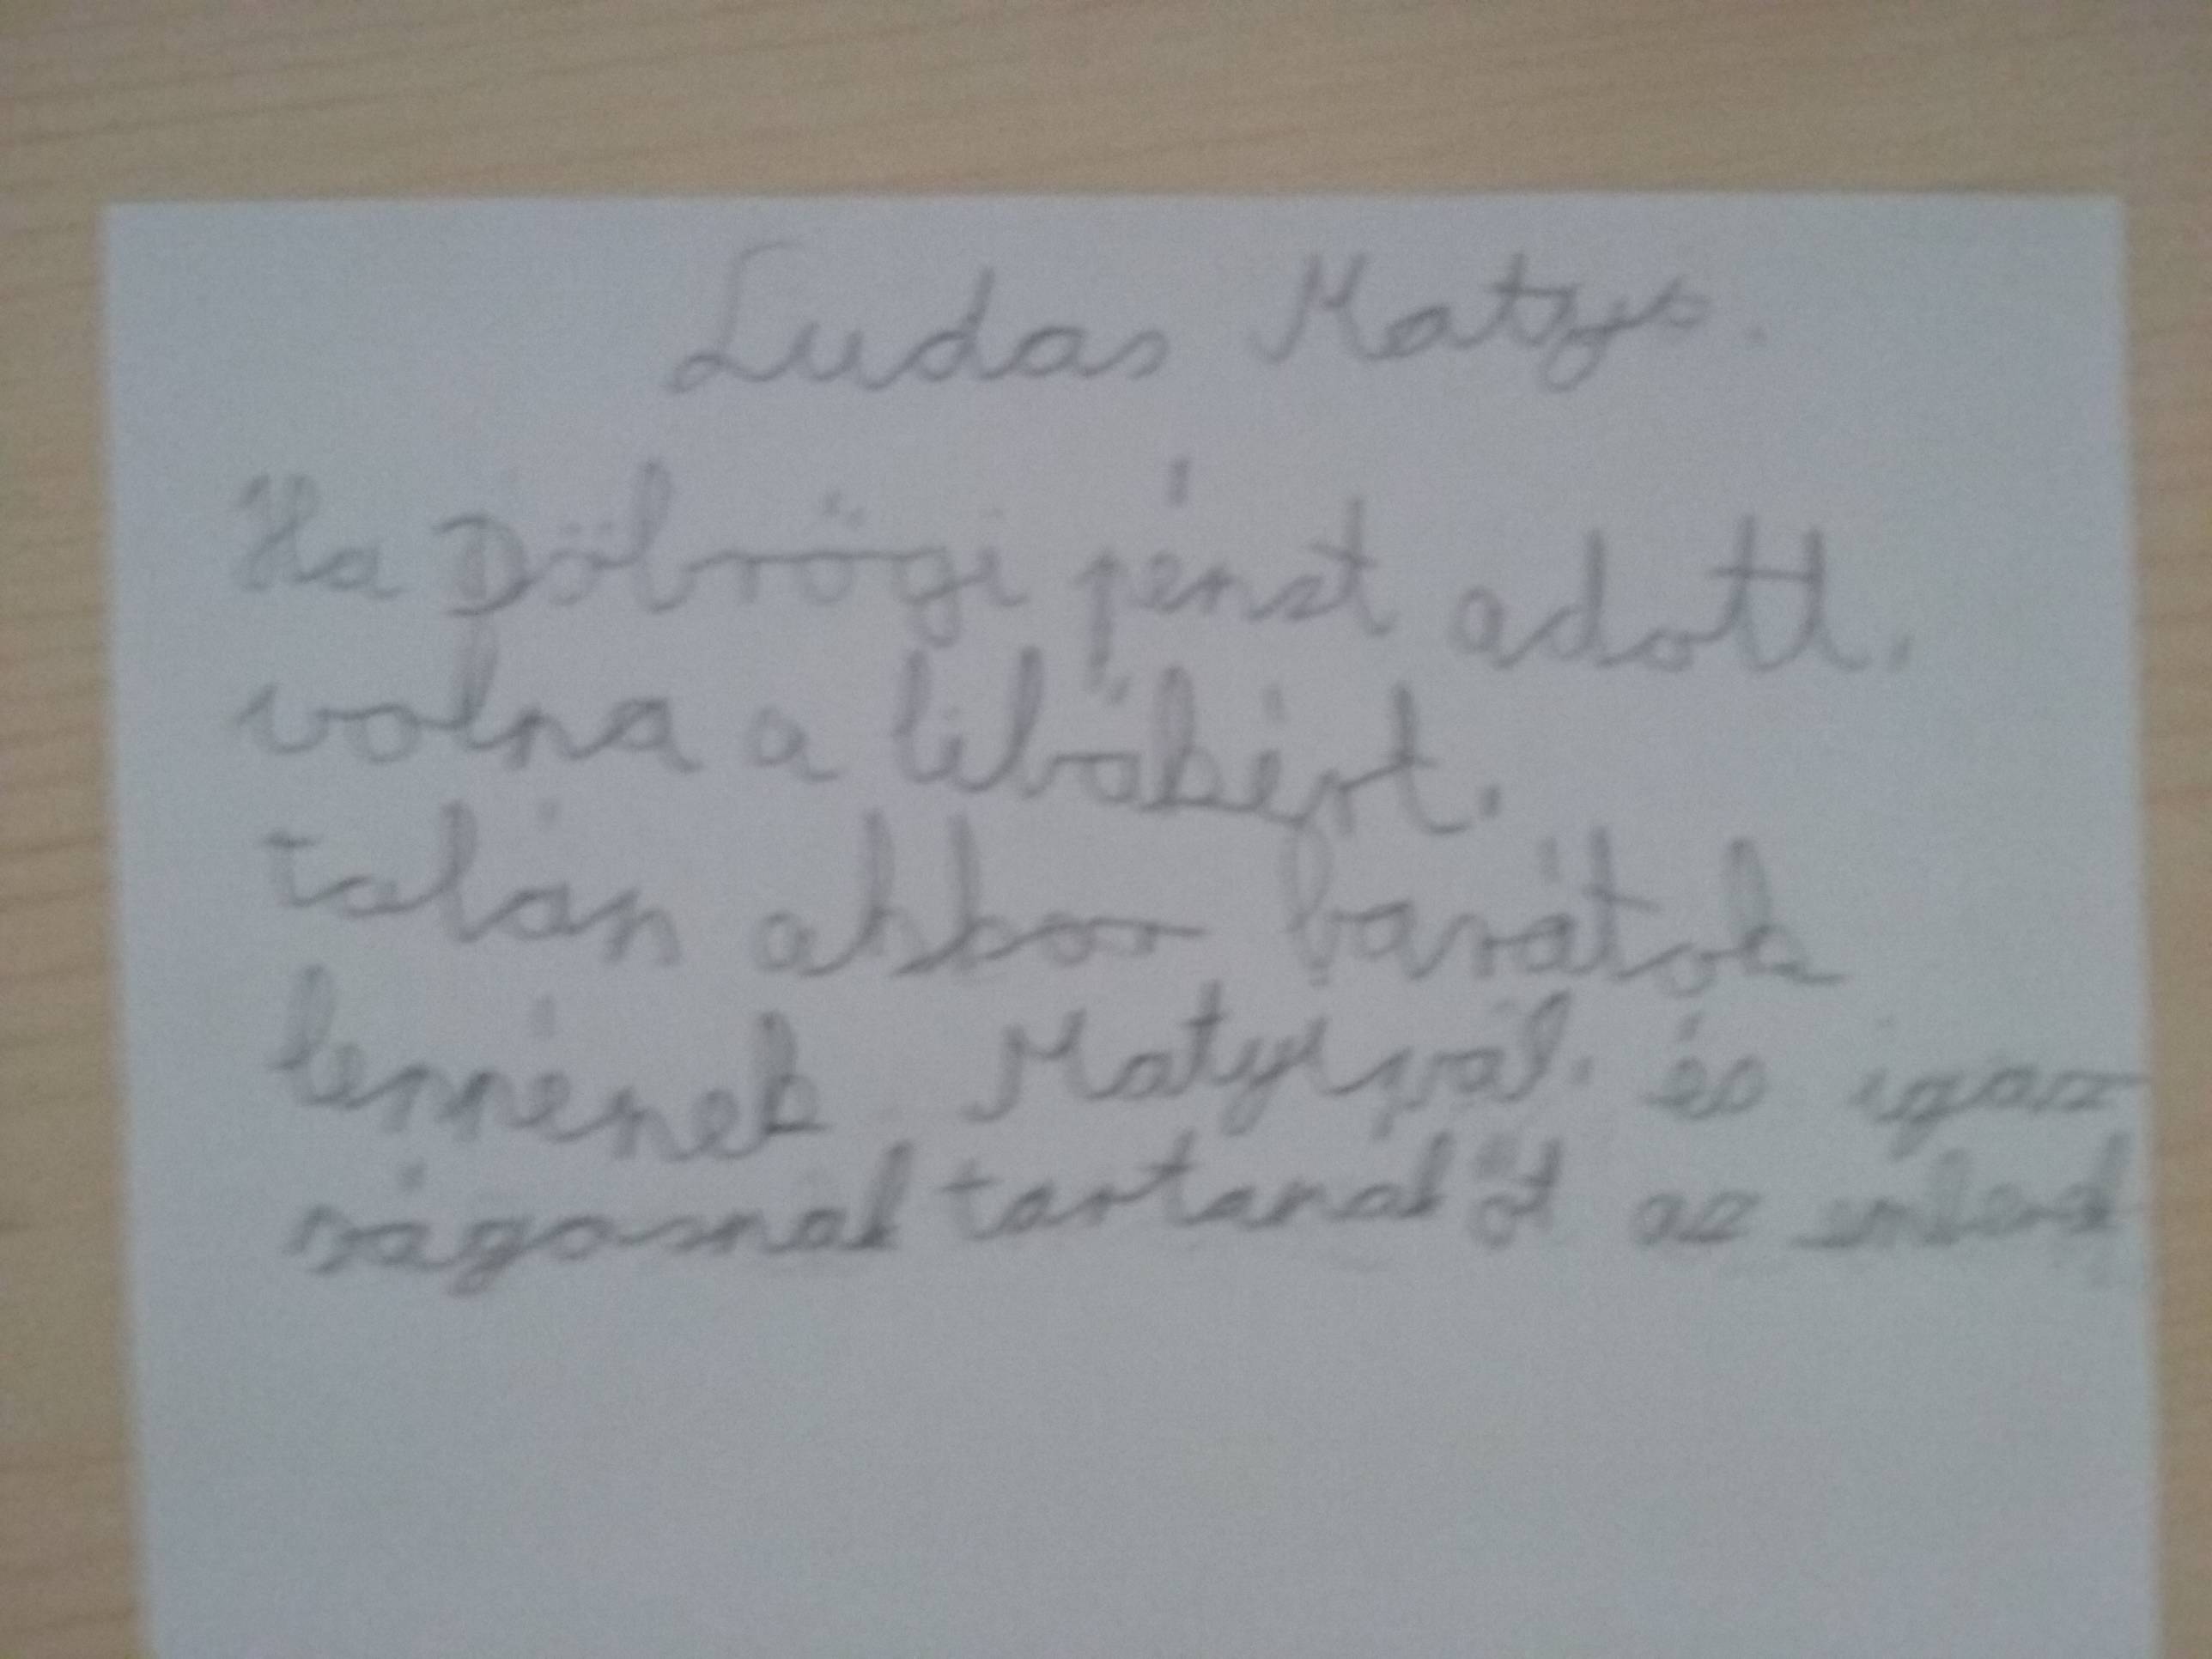 Ludas Matyi.
Ha Döbrögi pénzt adott.
volna a libákért.
talán akkor barátok
lennének Matyival. és igaz
ságosnak tartanák őt az